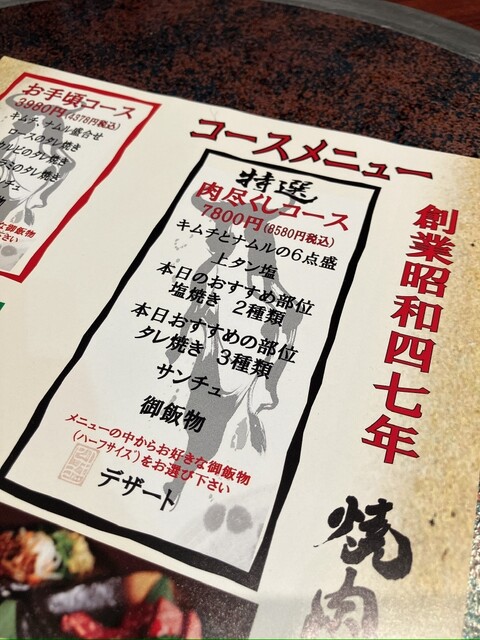 お手頃コース
3980円(4378円税込)
キムチ、ナムル盛合せ
ロースのタレ焼き
のタレ焼き
コースメニュー
特選
肉尽くしコース
7800円(8580円税込)
キムチとナムルの6点盛
上タン塩
本日のおすすめ部位
塩焼き 2種類
本日おすすめの部位
タレ焼き 3種類
サンチュ
御飯物
メニューの中からお好きな御飯物
(ハーフサイズ)をお選び下さい
デザート
創業昭和四七年
焼肉